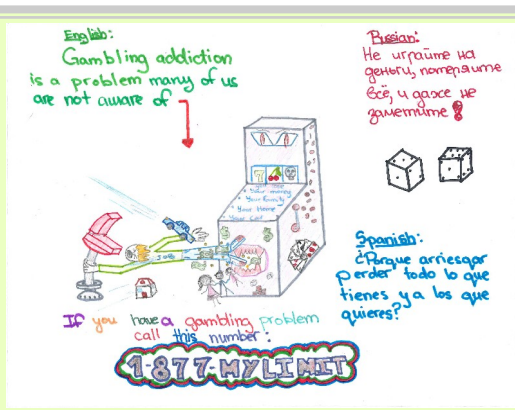 English:
Gambling addiction
is a problem many of us
are not aware of
Russian:
Не играйте на
деньги, потеряите
всё, и даже не
заметите!
7
Your money
• Your Family
• Your Home
• Your Car
JOB
Spanish:
¿Porque arriesgar
perder todo lo que
tienes y a los que
quieres?
If you have a gambling problem
call this number:
1-877-MYLIMIT